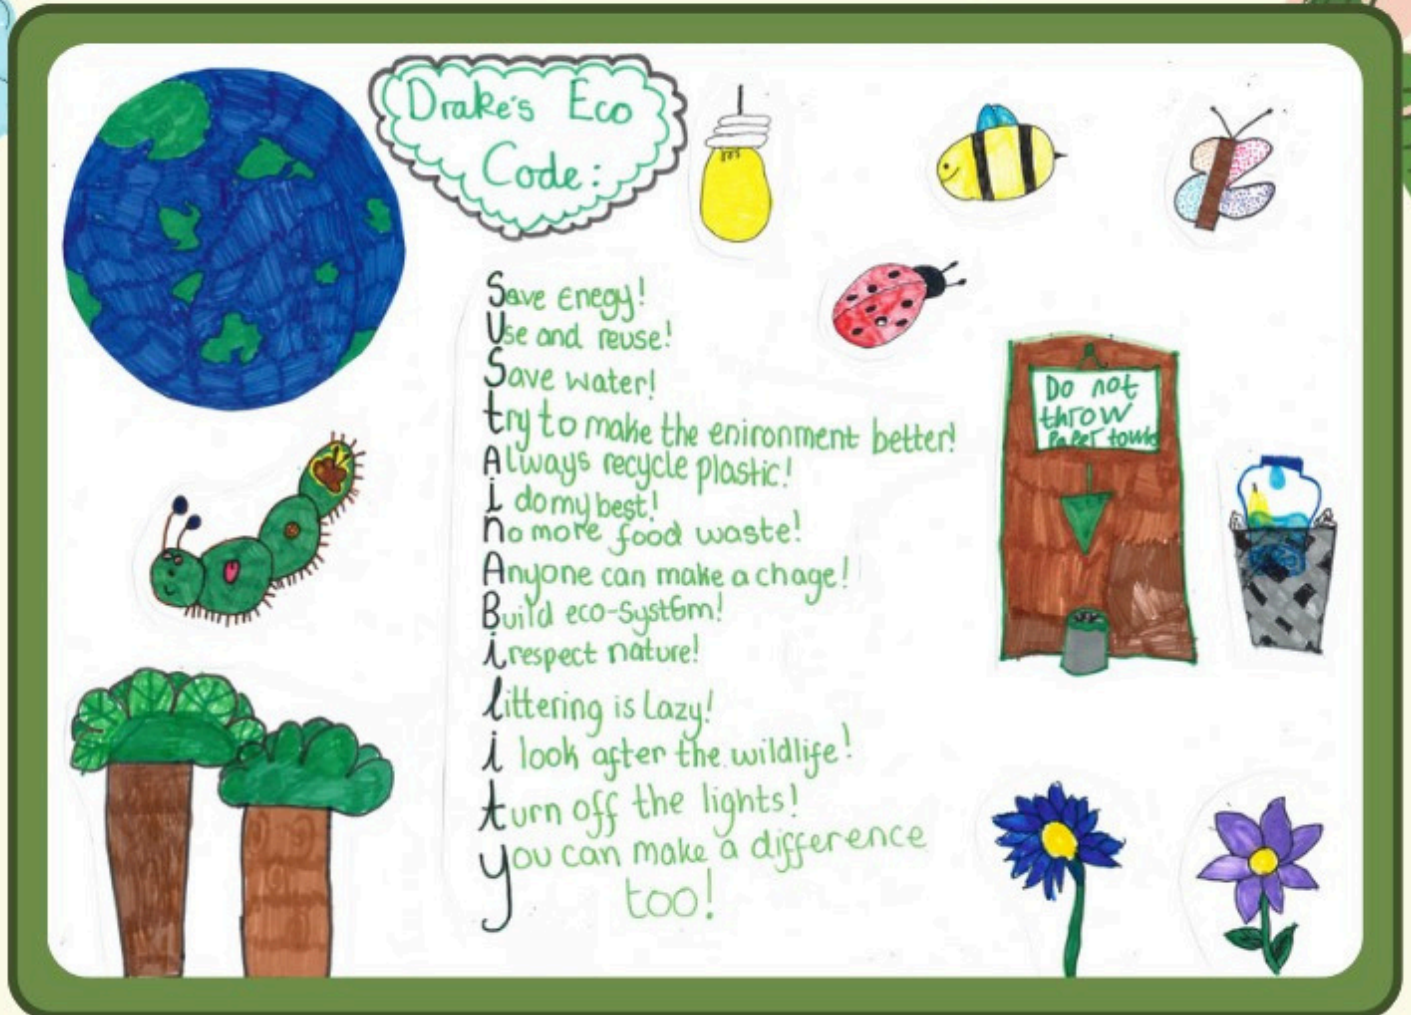 Drake's Eco
Code:
Save enegy!
Use and reuse!
Save water!
try to make the enironment better!
Always recycle plastic!
i do my best!
no more food waste!
Anyone can make a chage!
Build eco-system!
i respect nature!
littering is Lazy!
i look after the wildlife!
turn off the lights!
you can make a difference
too!
Do not
throw
PaPer towls